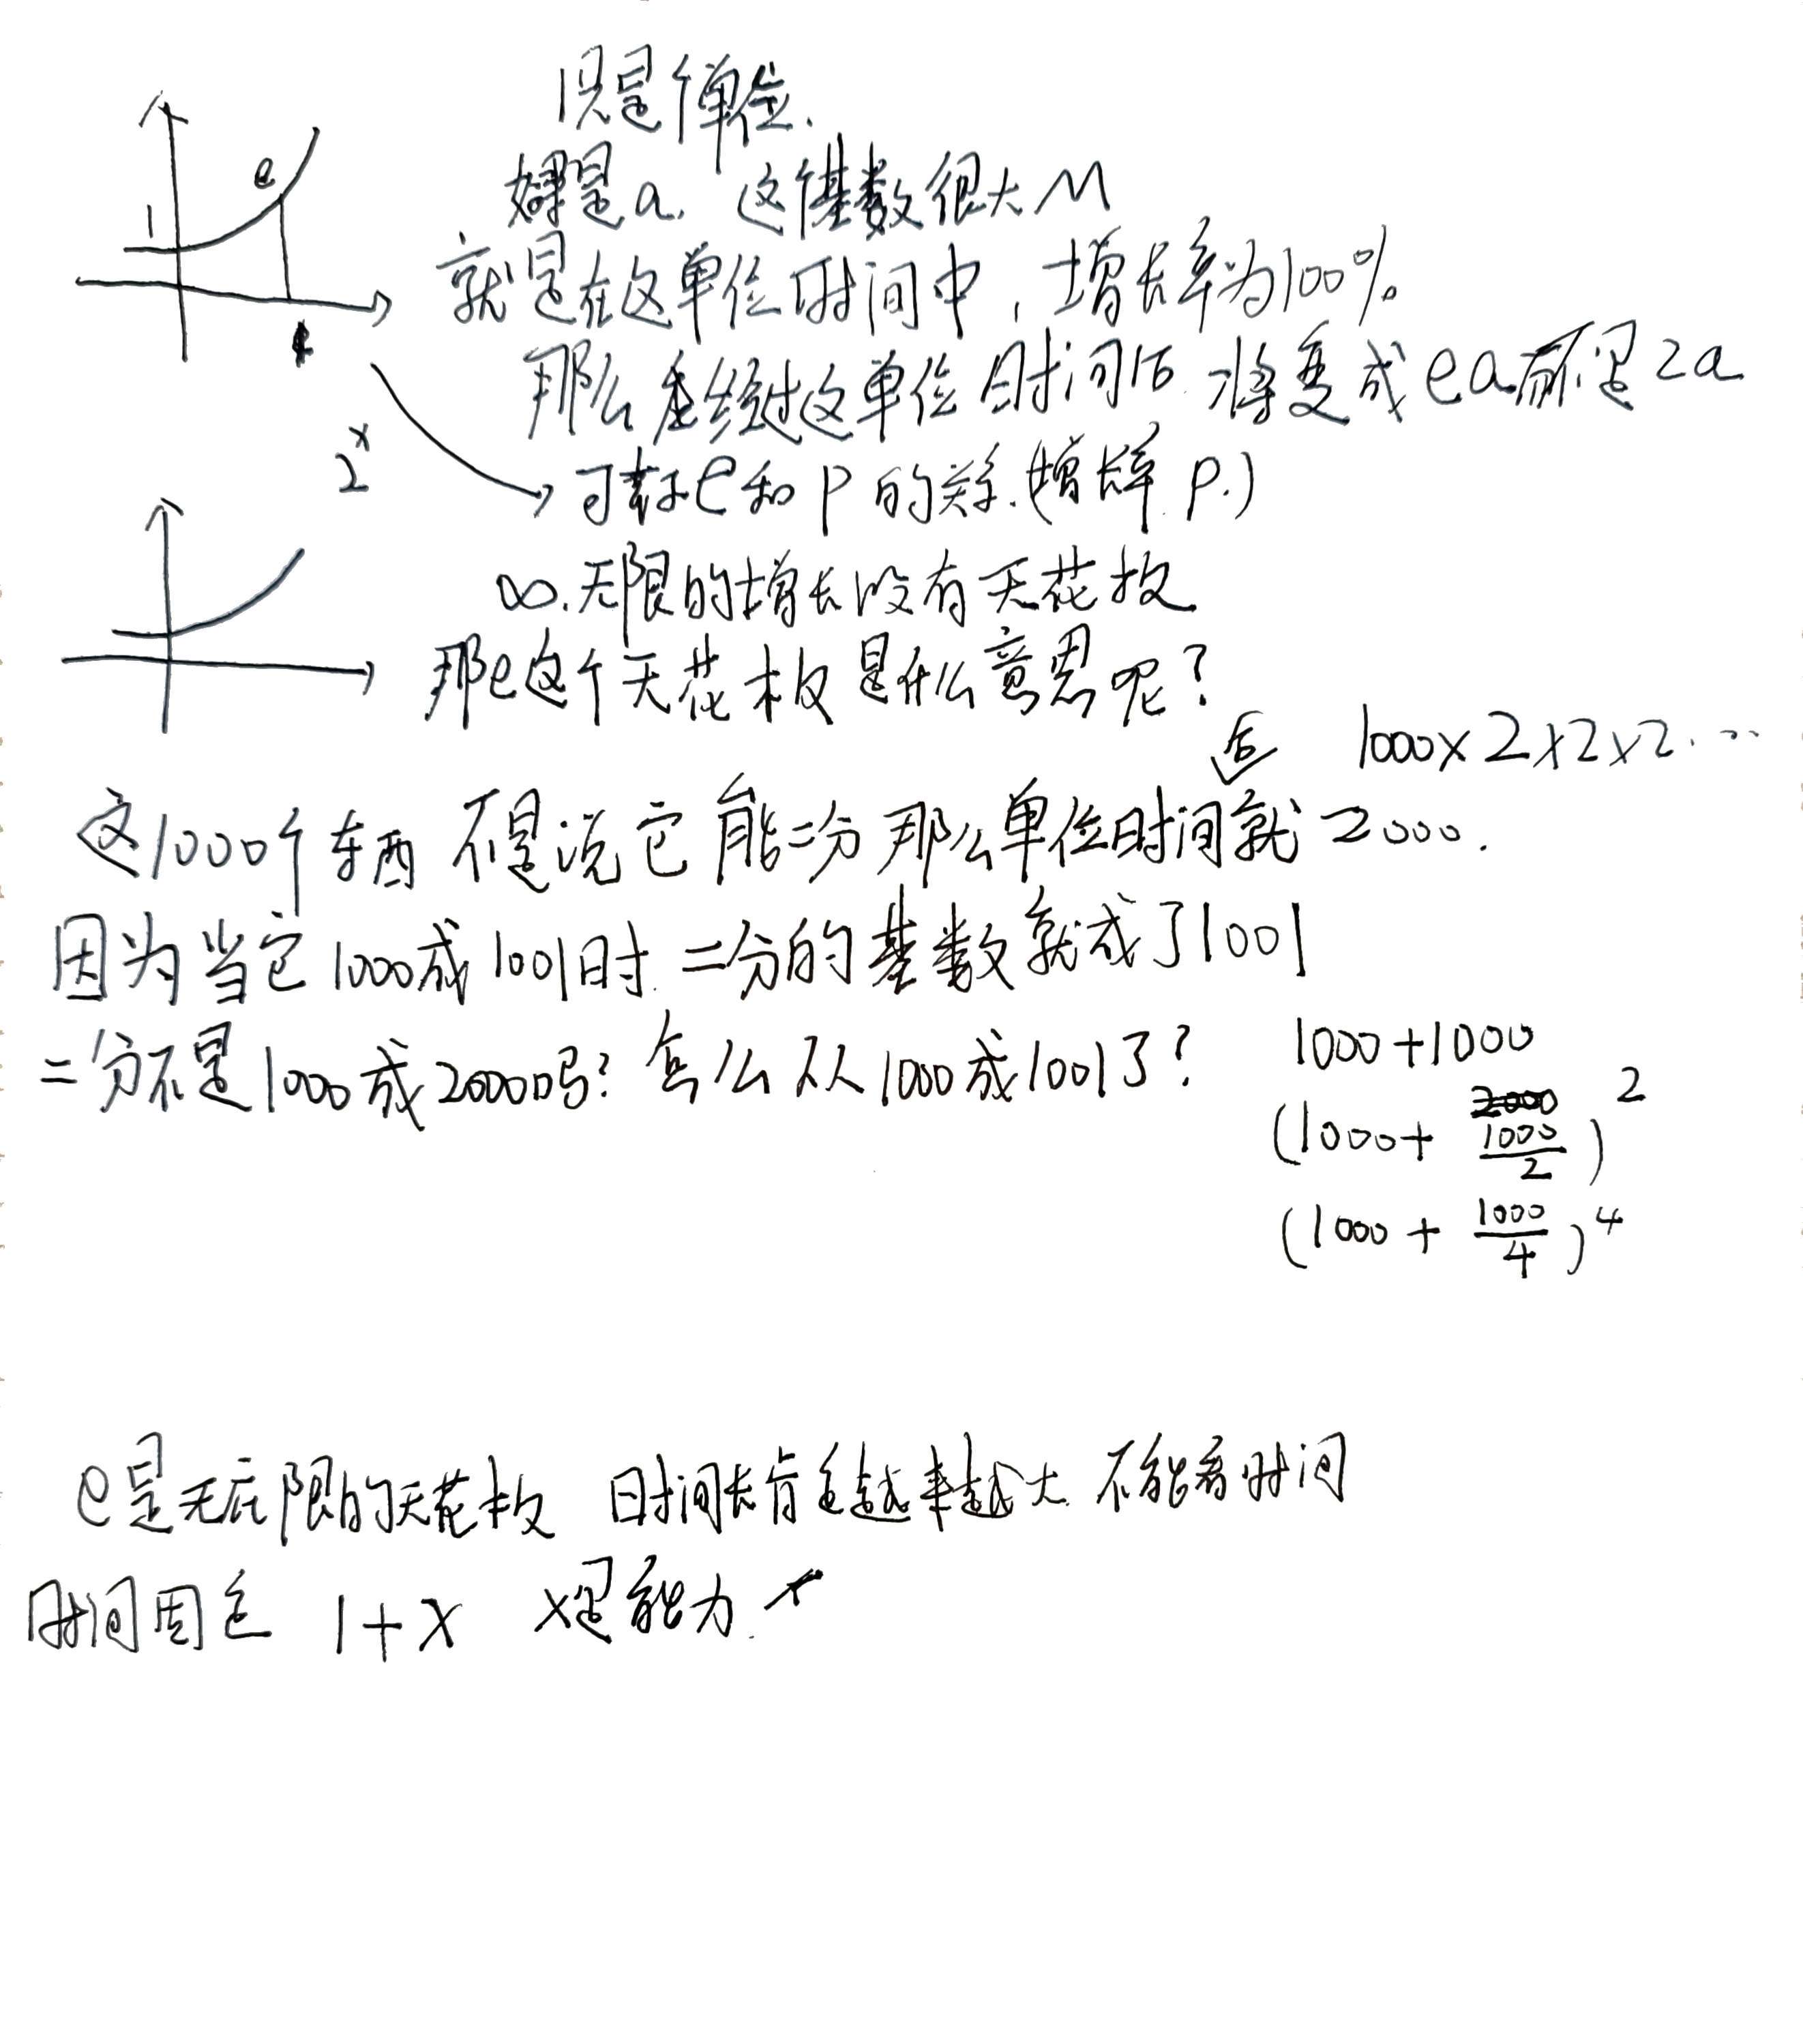 1只是个单位.
如果是a. 这个基数很大 M
就是在这单位时间中，增长率为100%
那么在经过这单位时间后 将变成ea而不是2a
可表示e和P的关系.(增长率 P.)
e
1
2^x
∞.无限的增长没有天花板
那e这个天花板是什么意思呢?
后 1000×2×2×2...
这1000个东西 不是说它能二分 那么单位时间就 2000.
因为当它1000成1001时. 二分的基数就成了1001
二分不是1000成2000吗? 怎么从1000成1001了?
1000+1000
(1000+ 1000/2)^2
(1000+ 1000/4)^4
e是无限的天花板 时间长肯定越来越大 不能看时间
时间固定 1+x x是能力